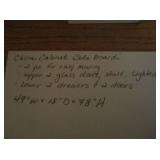 China Cabinet Side Board
- 2 pc for easy moving
upper 2 glass doors, shelf, lighted
- Lower 2 drawers & 2 doors
49" W x 15" D x 78" H